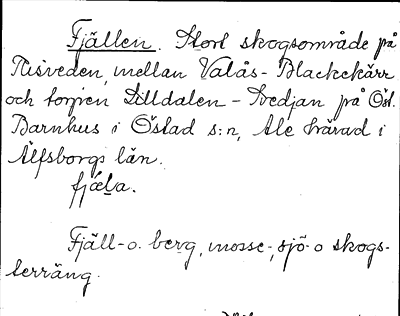 Fjällen. Stort skogsområde på
Risveden, mellan Valås - Blackekärr
och torpen Lilldalen - Svedjan på Öst.
Barnhus i Östad s:n, Ale härad i
Älfsborgs län.
fjäla.
Fjäll- o. berg, mosse-, sjö- o skogs-
terräng.